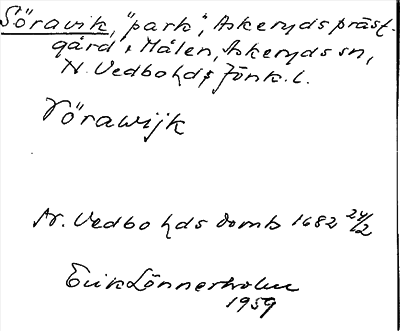 Söravik, "park", Askeryds präst-
gård, Målen, Askeryds sn,
N. Vedbo hds Jönk. l.
Vörawijk
N. Vedbo hds domb 1682 24/2
Erik Lönnerholm
1959